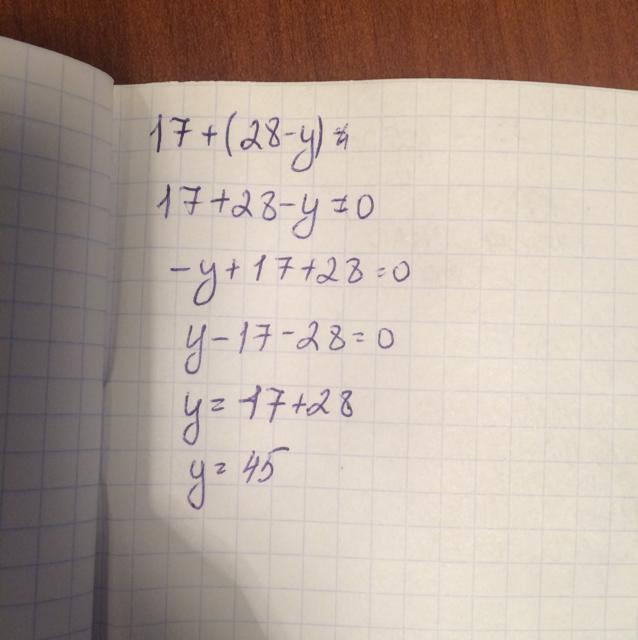 17+(28-y)=
17+28-y=0
-y+17+28=0
y-17-28=0
y=17+28
y=45